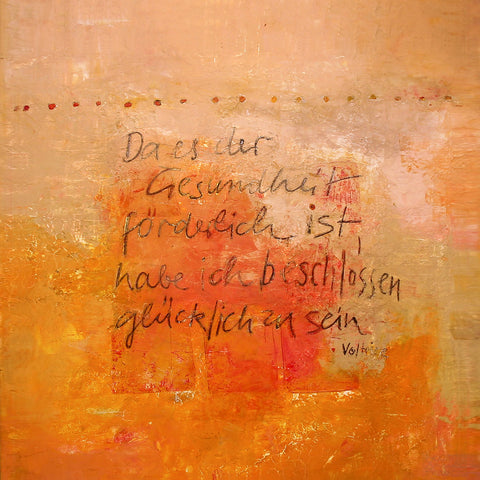 Da es der
Gesundheit
förderlich ist,
habe ich beschlossen
glücklich zu sein